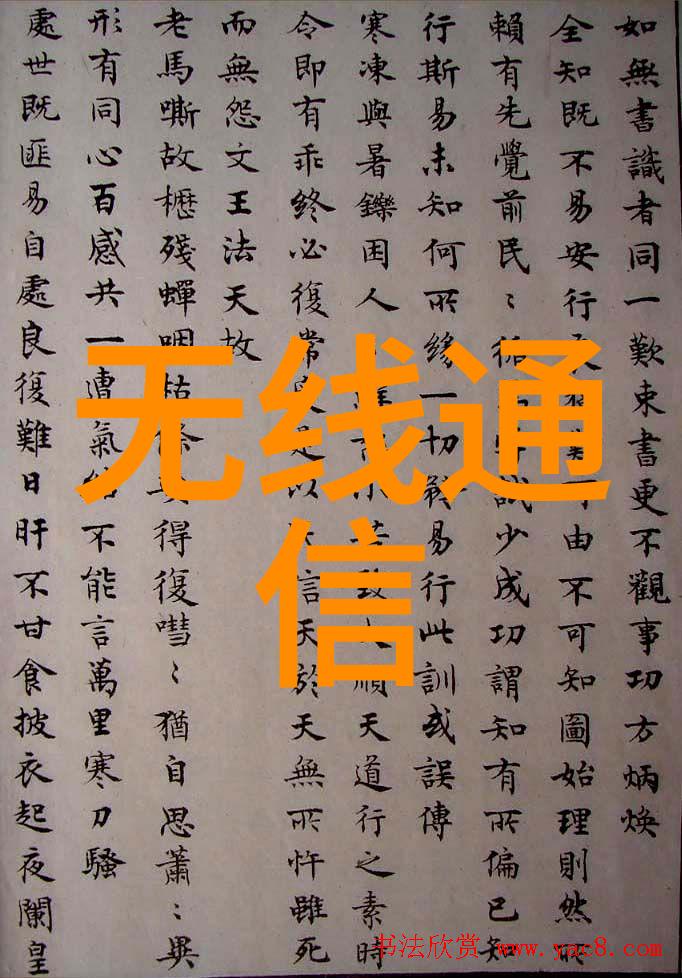 如無書識者同一歎束書更不觀事功方炳煥
全知既不易安行可由不可知圖始理則然所
賴有先覺前民〻循識少成功謂知有所偏已知
行斯易未知何所緣一切難易行此訓或誤傳
寒凍與暑鑠困人順天道行之素時
令即有乖終必復常以信天於天無所忤雖死
而無怨文王法天故
老馬嘶故櫪殘蟬咽枯條得復嘒〻猶自思蕭〻異
形有同心百感共一遭氣結不能言萬里寒刀騷
處世既匪易自處良復難日肝不甘食披衣起夜闌皇
无线通
信
书法欣赏 www.yac8.com